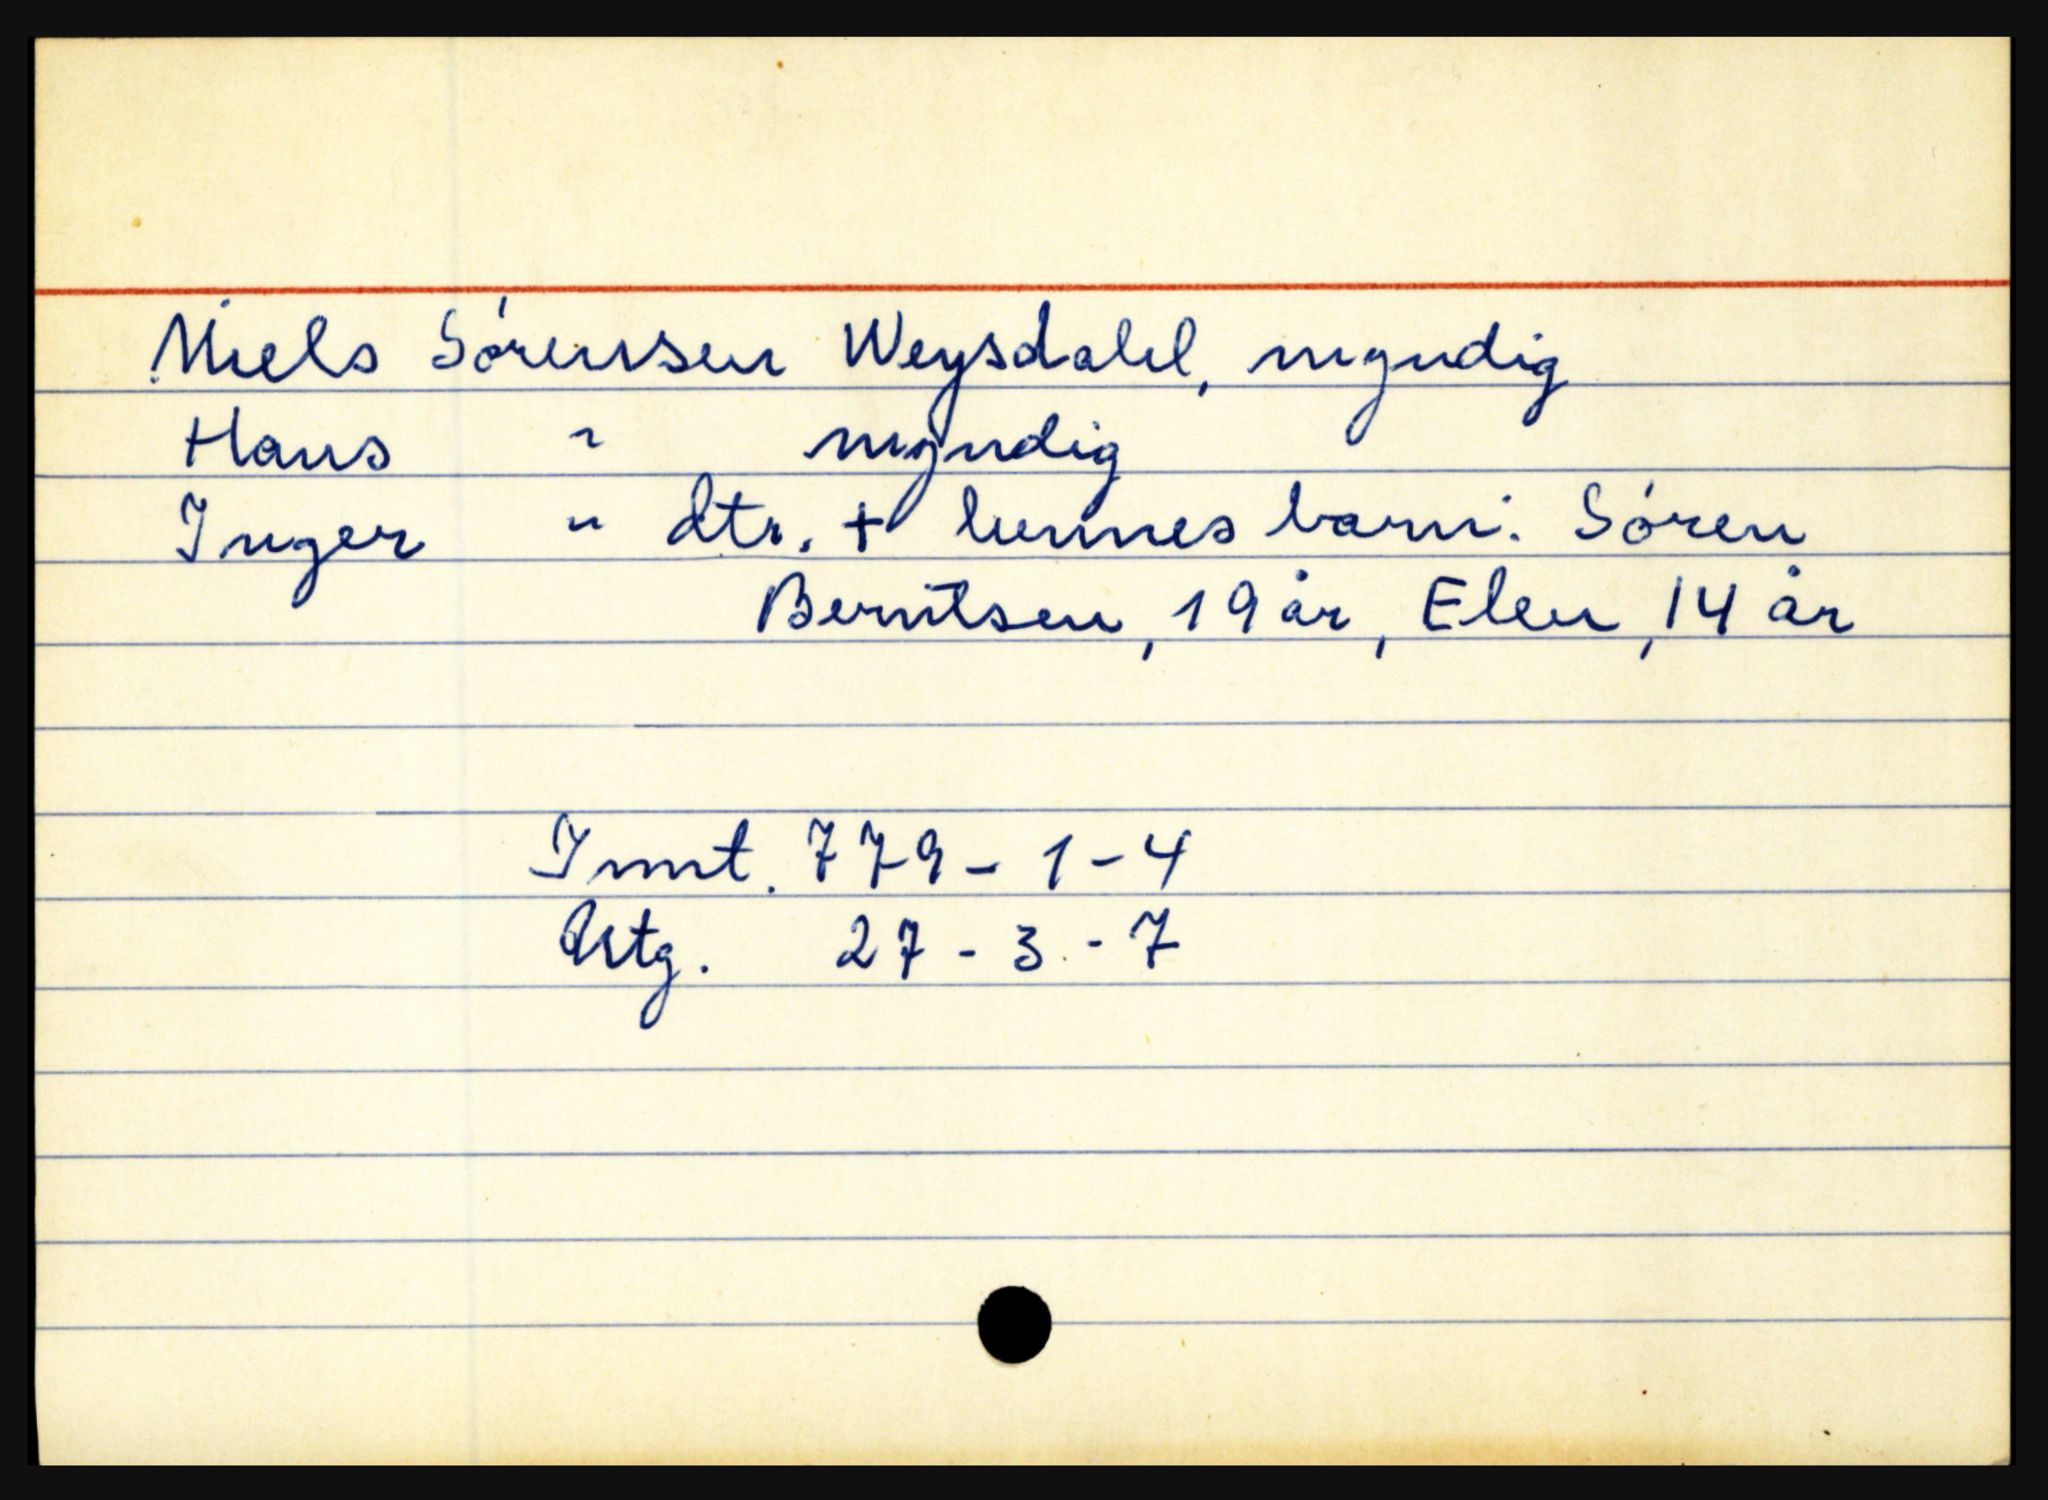 Niels Sørensen Weysdahl, myndig
Hans " myndig
Inger " dtr. + hennes barn: Sören
Berntsen, 19 år, Elen, 14 år
Innt. 779 - 1 - 4
Utg. 27 - 3 - 7